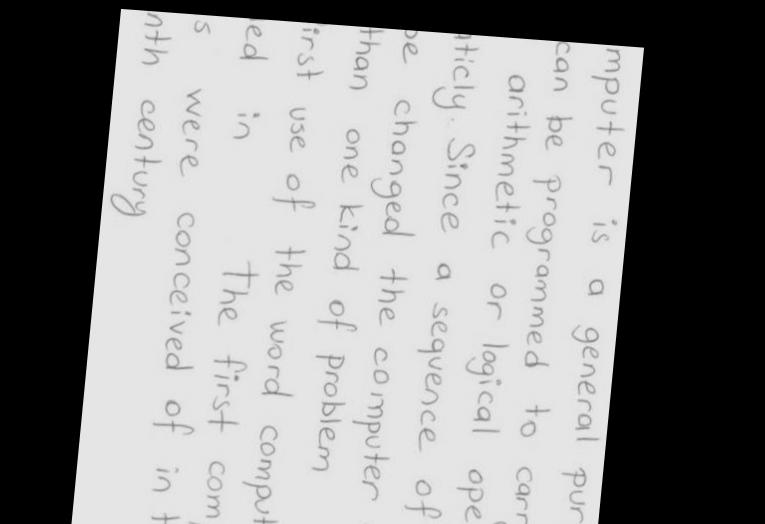 mputer is a general pur
can be programmed to carr
arithmetic or logical ope
ticly. Since a sequence of
be changed the computer
than one kind of problem
irst use of the word comput
ed in The first com
s were conceived of in t
nth century